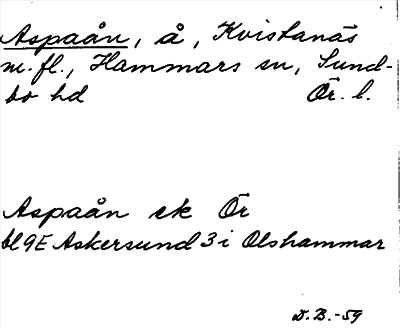 Aspaån, å, Kvistanäs
m.fl., Hammars sn, Sund-
bo hd Ör. l.
Aspaån ek Ör
bl 9E Askersund 3 i Olshammar
D.B.-59